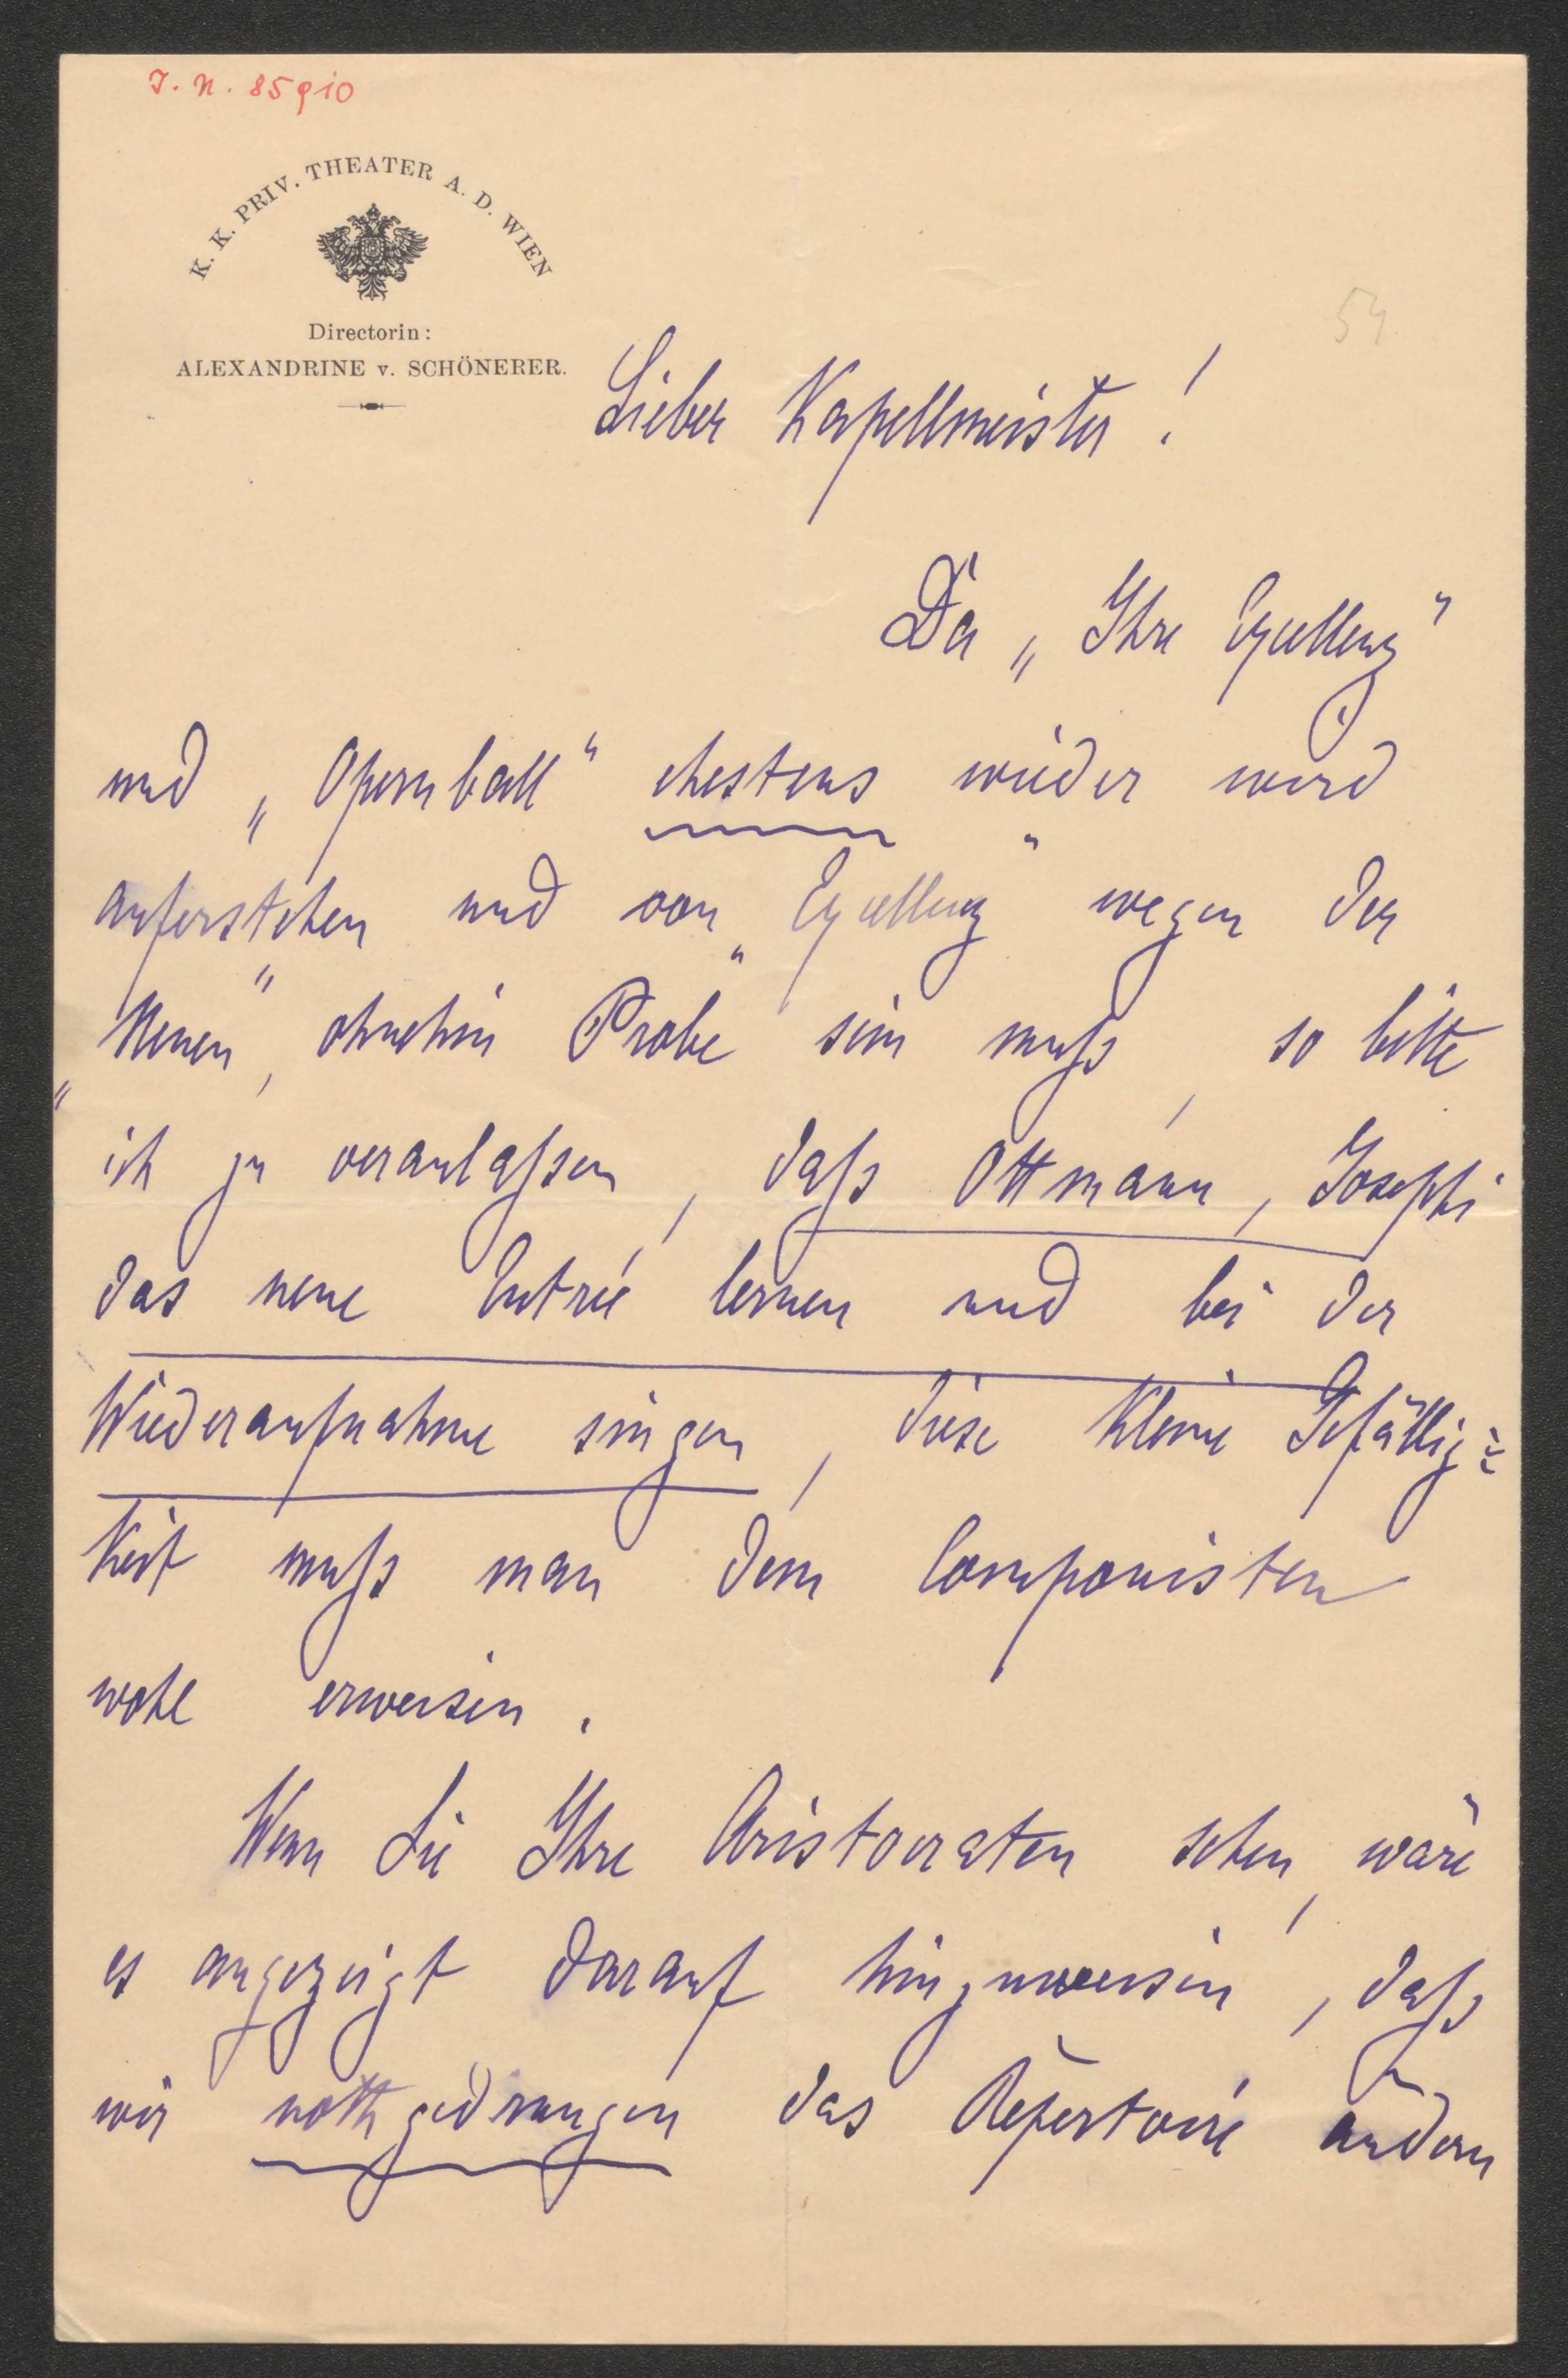 J. N. 85910
K. K. PRIV. THEATER A. D. WIEN
Directorin:
ALEXANDRINE v. SCHÖNERER.
54
Lieber Kapellmeister!
Da „Ihre Excellenz"
und „Opernball" ehestens wieder wird
auferstehen und von „Excellenz" wegen der
„Neuen", ohnehin Probe sein muß, so bitte
ich zu veranlaßen, daß Ottmann, Josephi
das neue Entrée lernen und bei der
Wiederaufnahme singen, diese kleine Gefällig=
keit muß man dem Componisten
wohl erweisen.
Wenn Sie Ihre Aristocraten sehen, wäre
es angezeigt darauf hinzuweisen, daß
wir nothgedrungen das Repertoire ändern